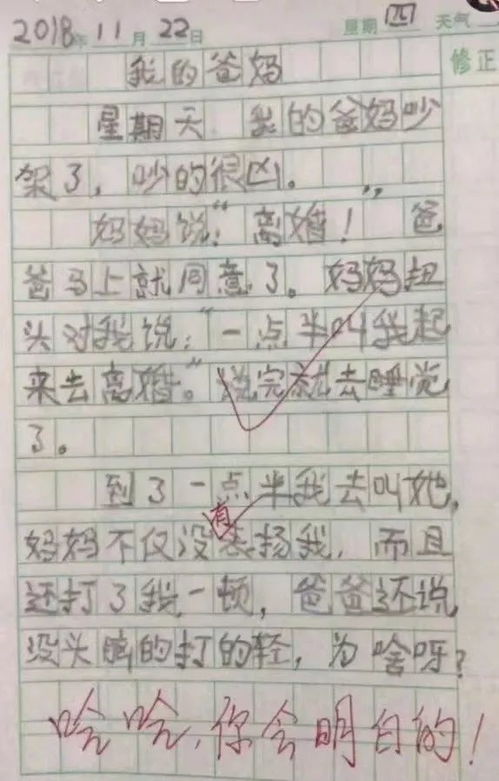 2018年 11月 22日 星期 四 天气
修正
我的爸妈
星期天 我的爸妈吵
架了，吵的很凶。
妈妈说：“离婚！” 爸
爸马上就同意了。妈妈扭
头对我说：“一点半叫我起
来去离婚。”说完就去睡觉
了。
到了一点半我去叫她，
妈妈不仅没有表扬我，而且
还打了我一顿，爸爸还说
没头脑的打的轻，为啥呀？
哈哈，你会明白的！